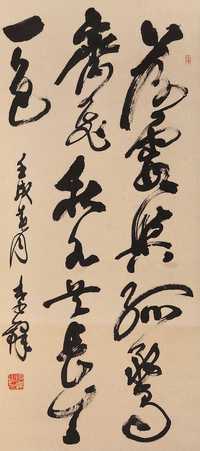 落霞与孤鹜
齐飞秋水共长天
一色
壬戌春月 李铎